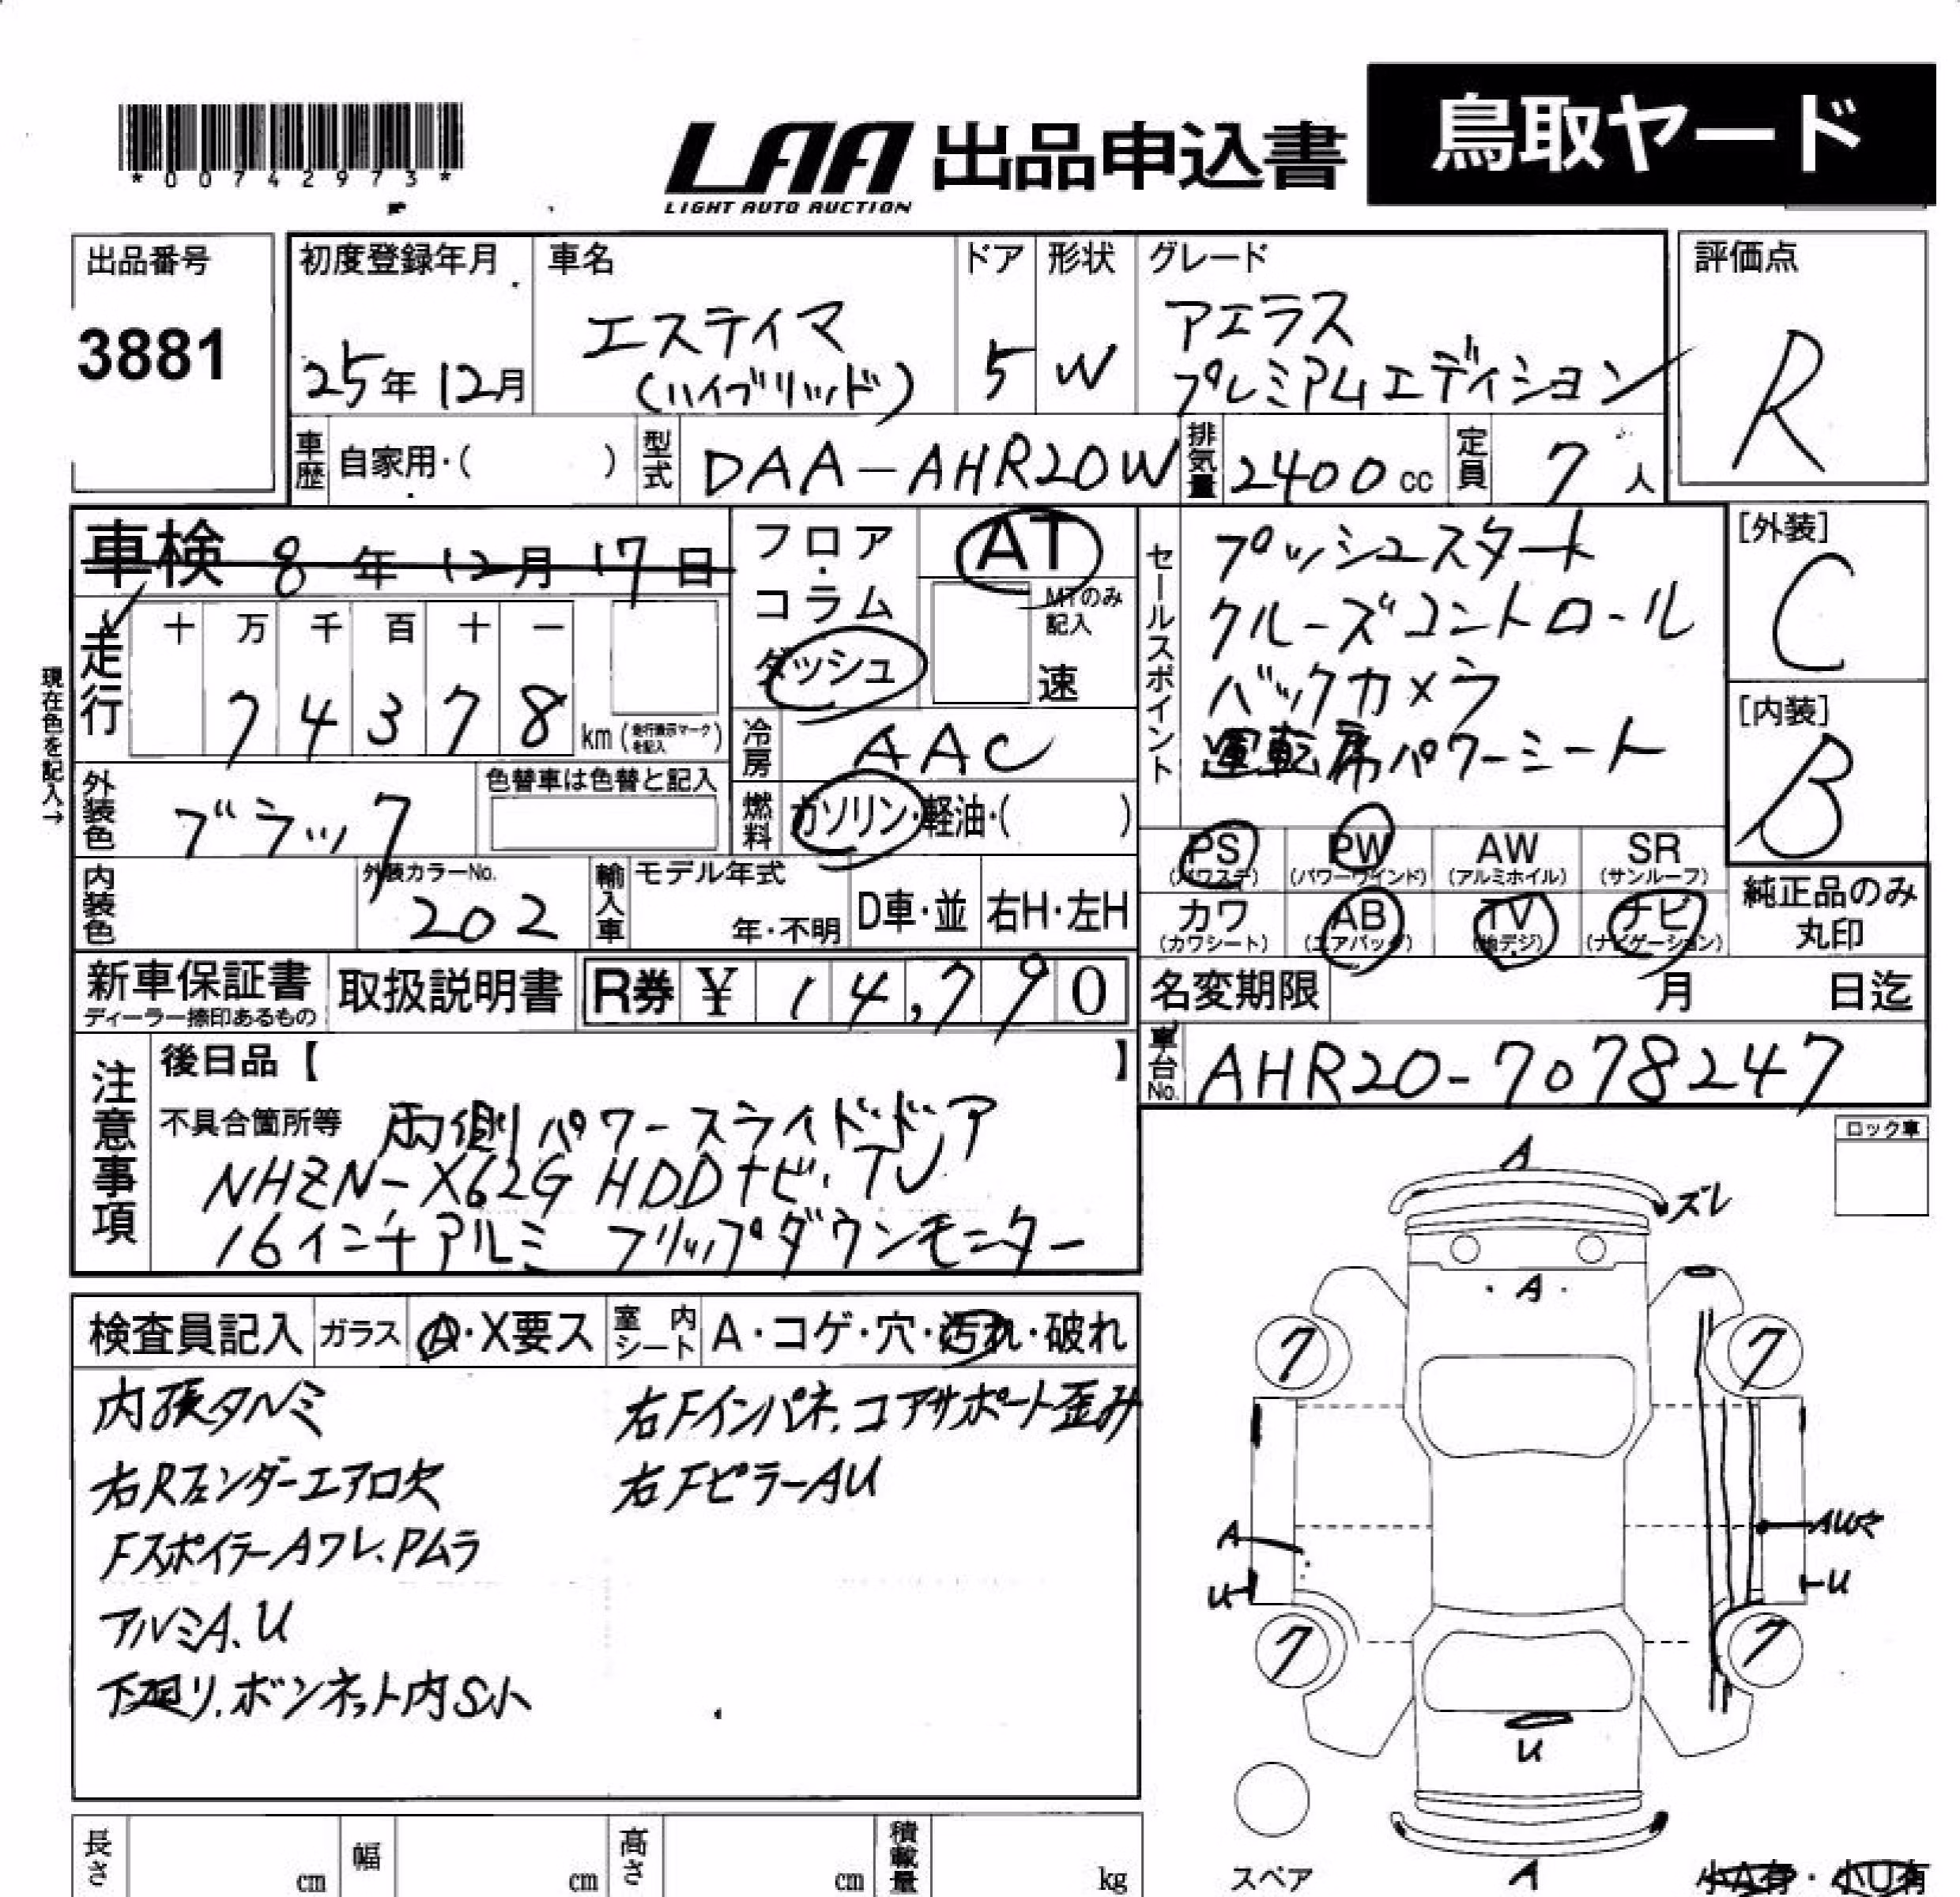 *00742973*
LAA 出品申込書 鳥取ヤード
LIGHT AUTO AUCTION
出品番号
3881
初度登録年月
25年12月
車名
エスティマ
(ハイブリッド)
ドア
5
形状
W
グレード
アエラス
プレミアムエディション
評価点
R
車歴 自家用・( )
型式 DAA-AHR20W
排気量 2400cc
定員 7人
車検 8年12月17日
走行
十 万 千 百 十 一
7 4 3 7 8 km(走行表示マークを記入)
現在色を記入→
外装色 ブラック
色替車は色替と記入
内装色
外装カラーNo.
202
フロア・
コラム
ダッシュ
AT
MTのみ
記入
速
冷房 AAC
燃料 ガソリン・軽油・( )
輸入車 モデル年式
年・不明
D車・並 右H・左H
セールスポイント
プッシュスタート
クルーズコントロール
バックカメラ
運転席パワーシート
[外装]
C
[内装]
B
PS (パワステ)
PW (パワーウインド)
AW (アルミホイル)
SR (サンルーフ)
カワ (カワシート)
AB (エアバッグ)
TV (地デジ)
ナビ (ナビゲーション)
純正品のみ
丸印
新車保証書
ディーラー捺印あるもの
取扱説明書
R券 ¥ 14,790
名変期限 月 日迄
車台No. AHR20-7078247
注意事項
後日品【 】
不具合箇所等 両側パワースライドドア
NHZN-X62G HDDナビ・TV
16インチアルミ フリップダウンモニター
ロック車
検査員記入 ガラス A・X要ス 室内シート A・コゲ・穴・汚れ・破れ
内張タルミ
右Rフェンダーエアロ欠
FスポイラーAワレ、Pムラ
アルミA、U
下廻り、ボンネット内S小
右Fインパネ、コアサポート歪み
右FピラーAU
A
ズレ
・A・
7
7
A
U
U
7
7
U
A
スペア
小A有・小U有
長さ cm
幅 cm
高さ cm
積載量 kg